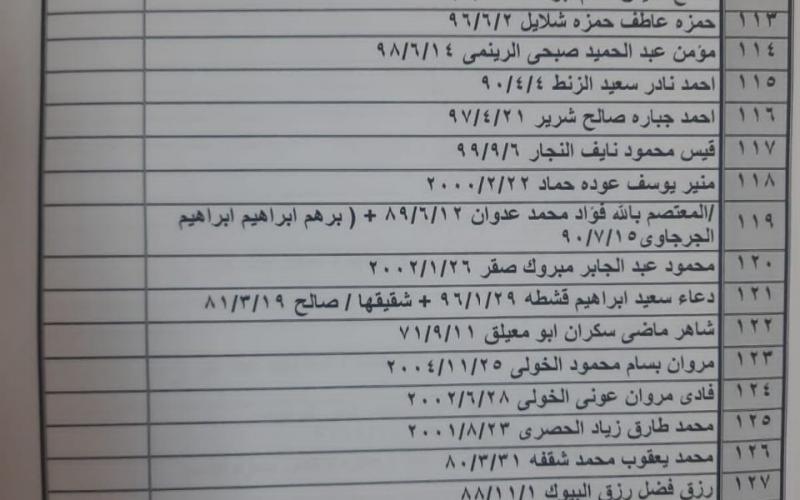 ١١٣ حمزه عاطف حمزه شلايل ٩٦/٦/٢
١١٤ مؤمن عبد الحميد صبحى الرينمى ٩٨/٦/١٤
١١٥ احمد نادر سعيد الزنط ٩٠/٤/٤
١١٦ احمد جباره صالح شرير ٩٧/٤/٢١
١١٧ قيس محمود نايف النجار ٩٩/٩/٦
١١٨ منير يوسف عوده حماد ٢٠٠٠/٢/٢٢
١١٩ /المعتصم بالله فؤاد محمد عدوان ٨٩/٦/١٢ + ( برهم ابراهيم ابراهيم
الجرجاوى ٩٠/٧/١٥
١٢٠ محمود عبد الجابر مبروك صقر ٢٠٠٢/١/٢٦
١٢١ دعاء سعيد ابراهيم قشطه ٩٦/١/٢٩ + شقيقها / صالح ٨١/٣/١٩
١٢٢ شاهر ماضى سكران ابو معيلق ٧١/٩/١١
١٢٣ مروان بسام محمود الخولى ٢٠٠٤/١١/٢٥
١٢٤ فادى مروان عونى الخولى ٢٠٠٢/٦/٢٨
١٢٥ محمد طارق زياد الحصرى ٢٠٠١/٨/٢٣
١٢٦ محمد يعقوب محمد شقفه ٨٠/٣/٣١
١٢٧ رزق فضل رزق البيوك ٨٨/١١/١